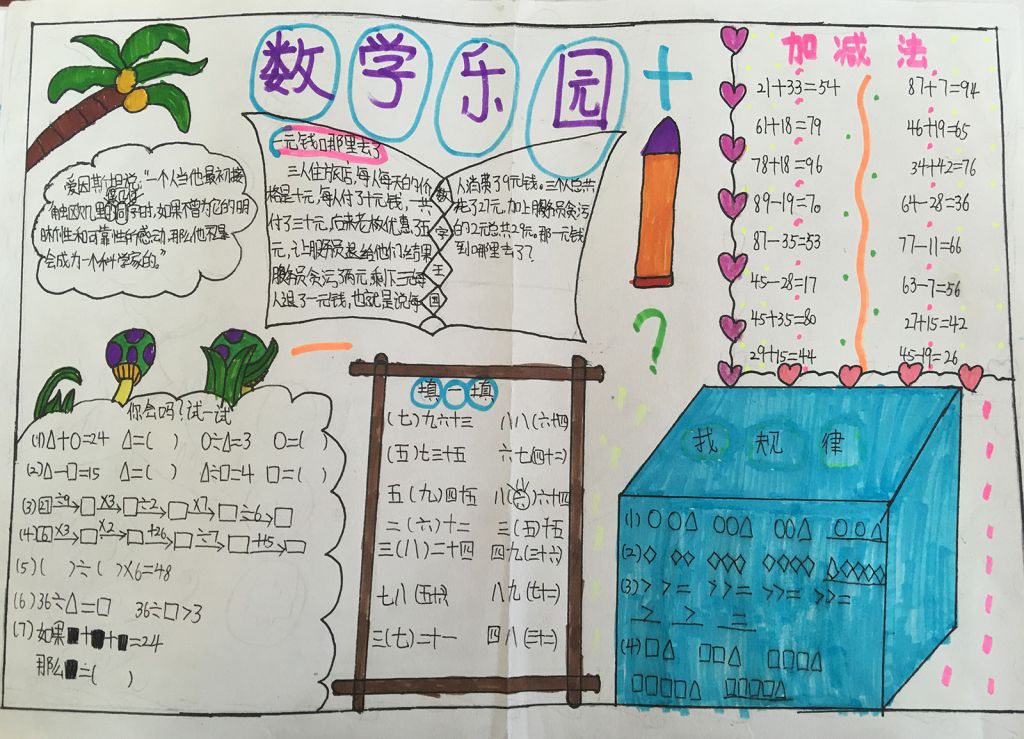 数学乐园
爱因斯坦说:“一个人当他最初接
触欧几里的何学时,如果不曾为它的明
晰性和可靠性所感动,那么他不是
会成为一个科学家的。”
一元钱哪里去了
三人住旅店,每人每天的价
格是十元,每人付了十元钱,一共
付了三十元,后来老板优惠了五
元,让服务员退给他们,结果
服务员贪污了两元,剩下三元每
人退了一元钱,也就是说,每
数
字
王
国
人消费了9元钱。三个人总共
花了27元,加上服务员贪污
的2元总共29元。那一元钱
到哪里去了?
+
?
加减法
21+33=54
61+18=79
78+18=96
89-19=70
87-35=53
45-28=17
45+35=80
29+15=44
87+7=94
46+19=65
34+42=76
64-28=36
77-11=66
63-7=56
27+15=42
45-19=26
你会吗?试一试
(1)△+○=24 △=( ) ○÷△=3 ○=( )
(2)△-□=15 △=( ) △÷□=4 □=( )
(3) ÷9→□×3→□÷2→□×7→□÷6→□
(4) ×3→□×2→□+26→□÷7→□+15→□
(5)( )÷( )×6=48
(6)36÷△=□ 36÷□>3
(7)如果■+■+■=24
那么■=( )
填一填
(七)九六十三 八八(六十四)
(五)七三十五 六七(四十二)
五(九)四十五 八( )六十四
二(六)十二 三(五)十五
三(八)二十四 四九(三十六)
七八(五十六) 八九(七十二)
三(七)二十一 四八(三十二)
找规律
(1)○○△ ○○△ ○○△ ○○△
(2)◇ ◇◇ ◇◇◇ ◇◇◇◇ ◇◇◇◇◇
(3)>>= >>= >>= >>=
> > =
(4)□△ □□△ □□□△
□□□□△ □□□□△